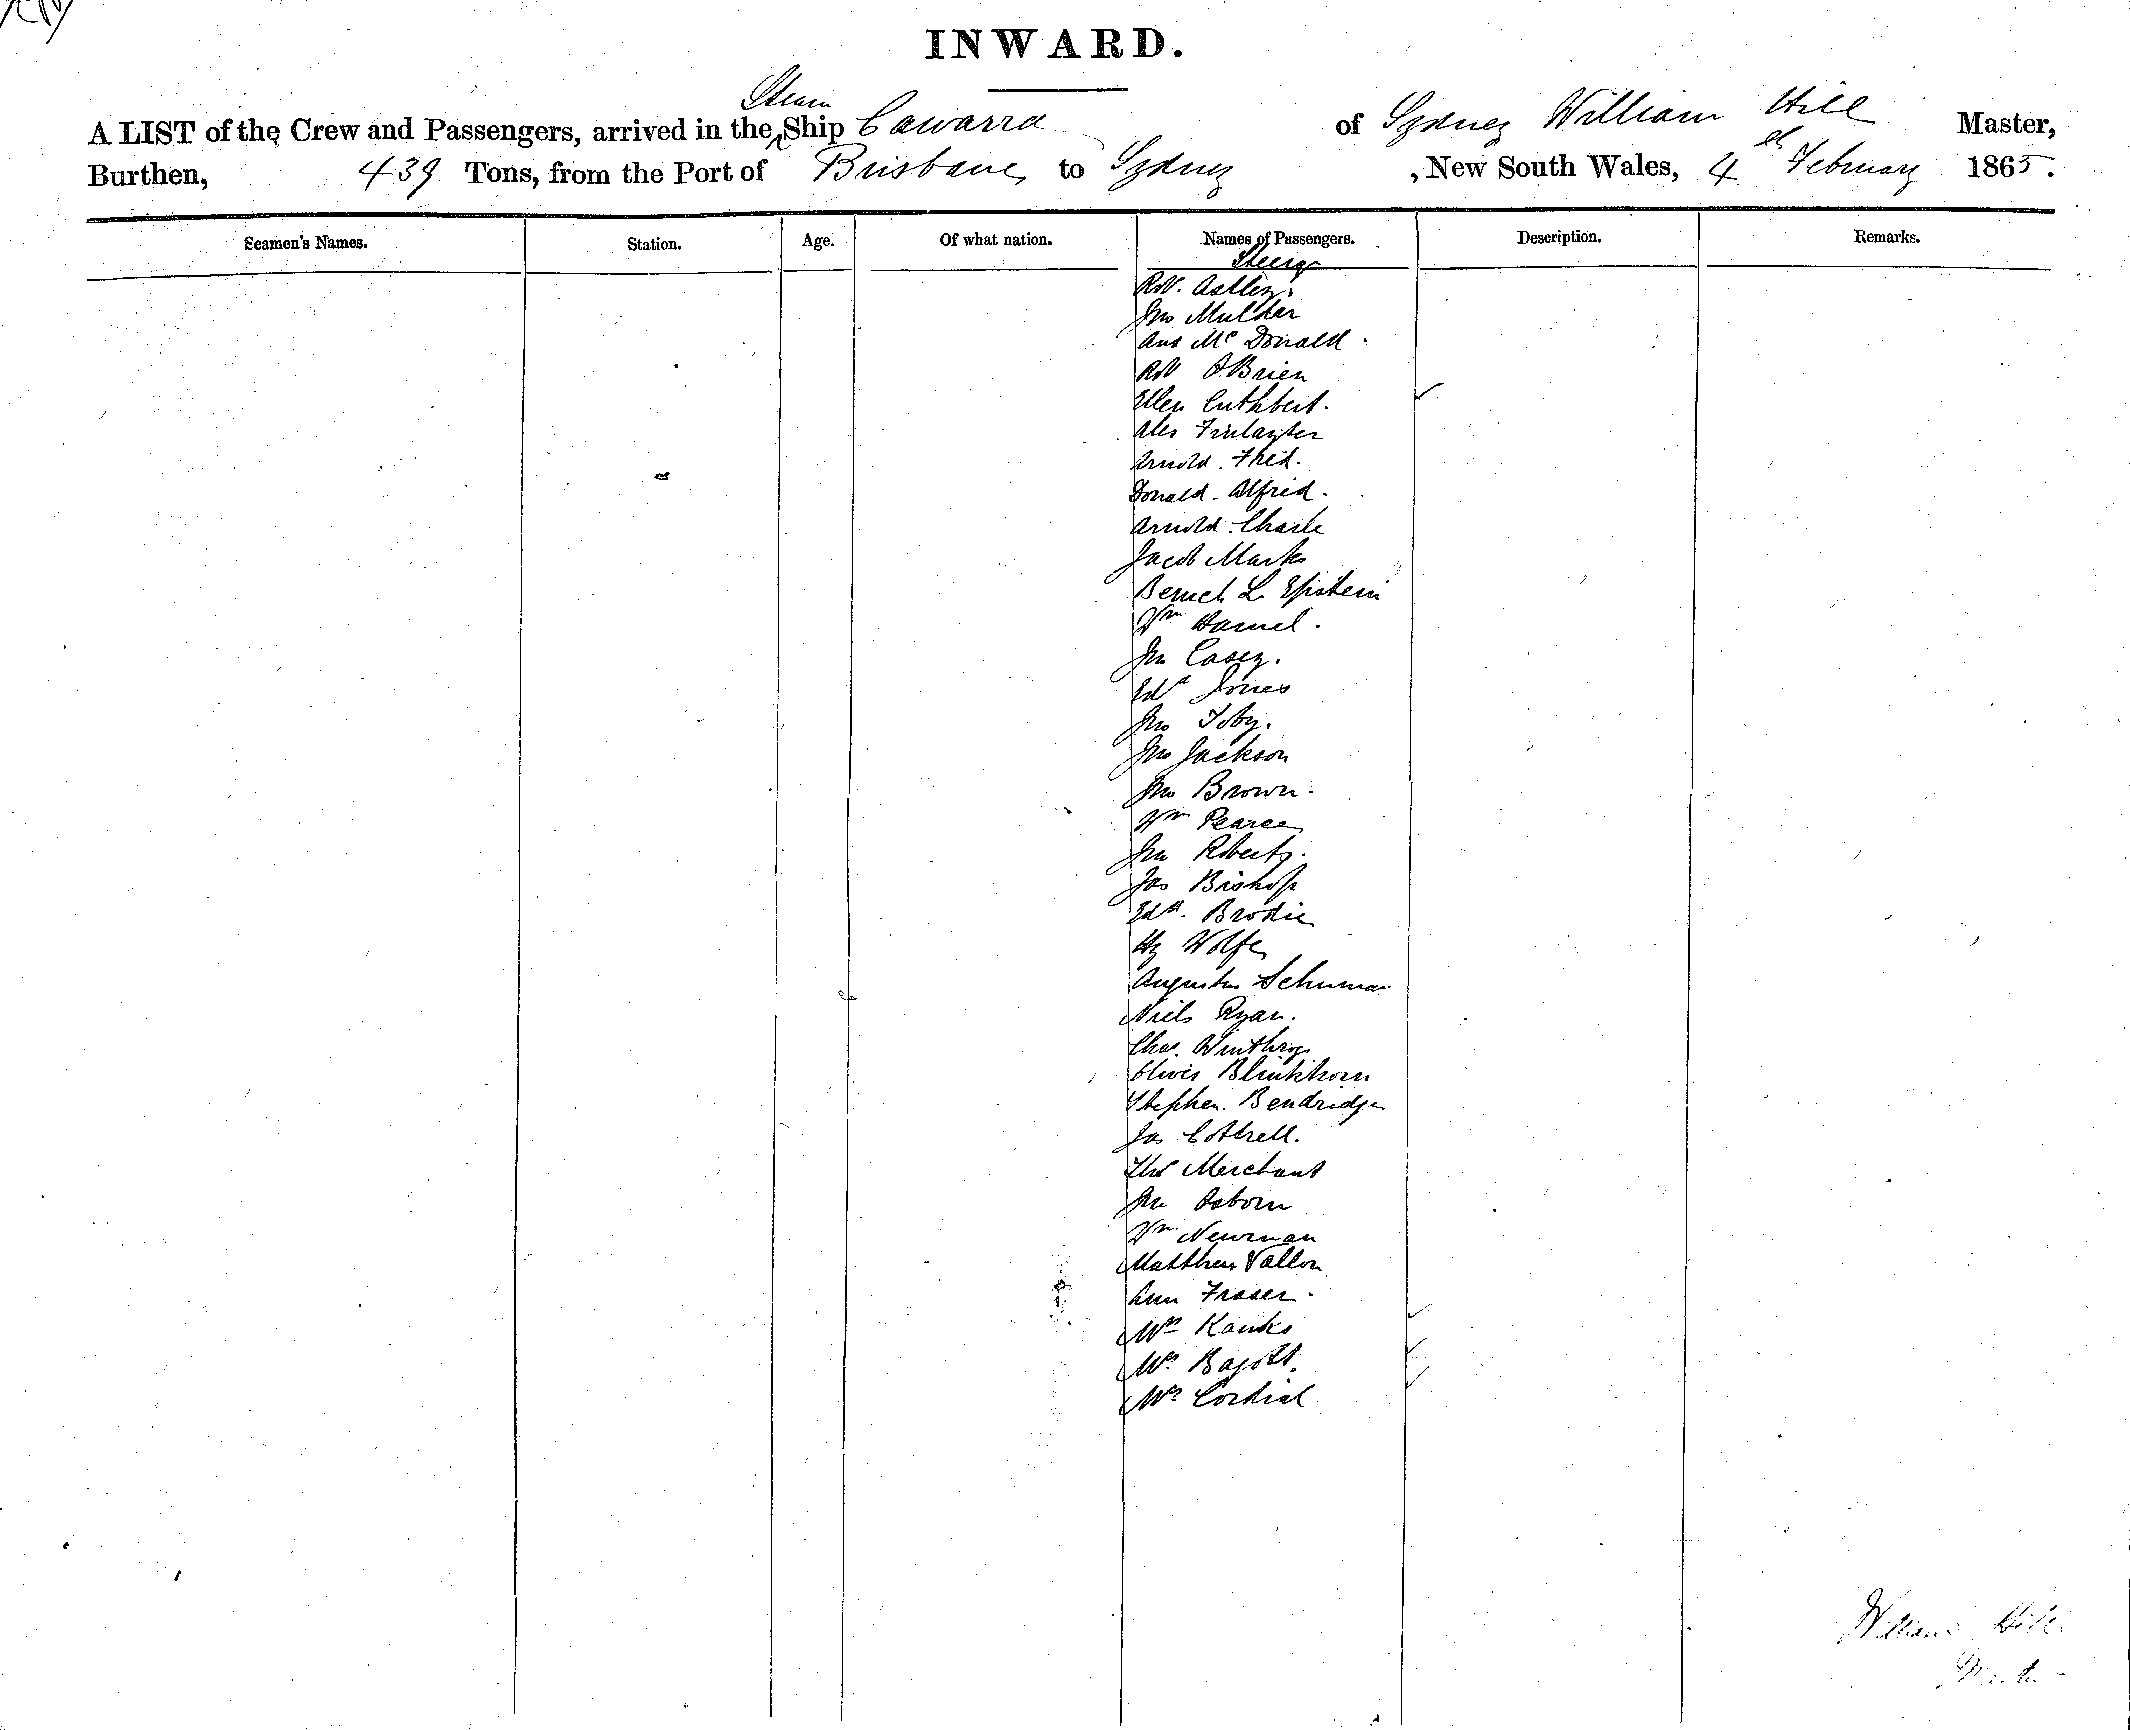 INWARD.
A LIST of the Crew and Passengers, arrived in the Steam Ship Cawarra of Sydney William Hill Master,
Burthen, 439 Tons, from the Port of Brisbane to Sydney , New South Wales, 4th February 1865.
Seamen's Names. Station. Age. Of what nation. Names of Passengers. Description. Remarks.
Steerge
Robt. Astley.
Jno Mulder
Ans Mc Donald
Robt O'Brien
Ellen Cuthbert.
Alex Finlayter
Arnold. Fred.
Donald. Alfred.
Arnold. Charle
Jacob Marks
Beruch L. Epstein
Wm Hamel.
Jno Casey.
Edwd Jones
Jno Toby.
Jno Jackson
Jno Brown.
Wm Pearce
Jno Roberts.
Jas Bishop
Edwd. Brodie
Hy Wolfe
Augustus Schuman
Niels Ryan.
Chas. Winthrop
Oliver Blinkhorn
Stephen. Bendridge
Jas Cottrell.
Thos Merchant
Jno Osborn
Wm Newman
Matthew Vallon
Ann Fraser.
Mrs
Mrs Bagott.
Mrs Cordial
William Hill
Master